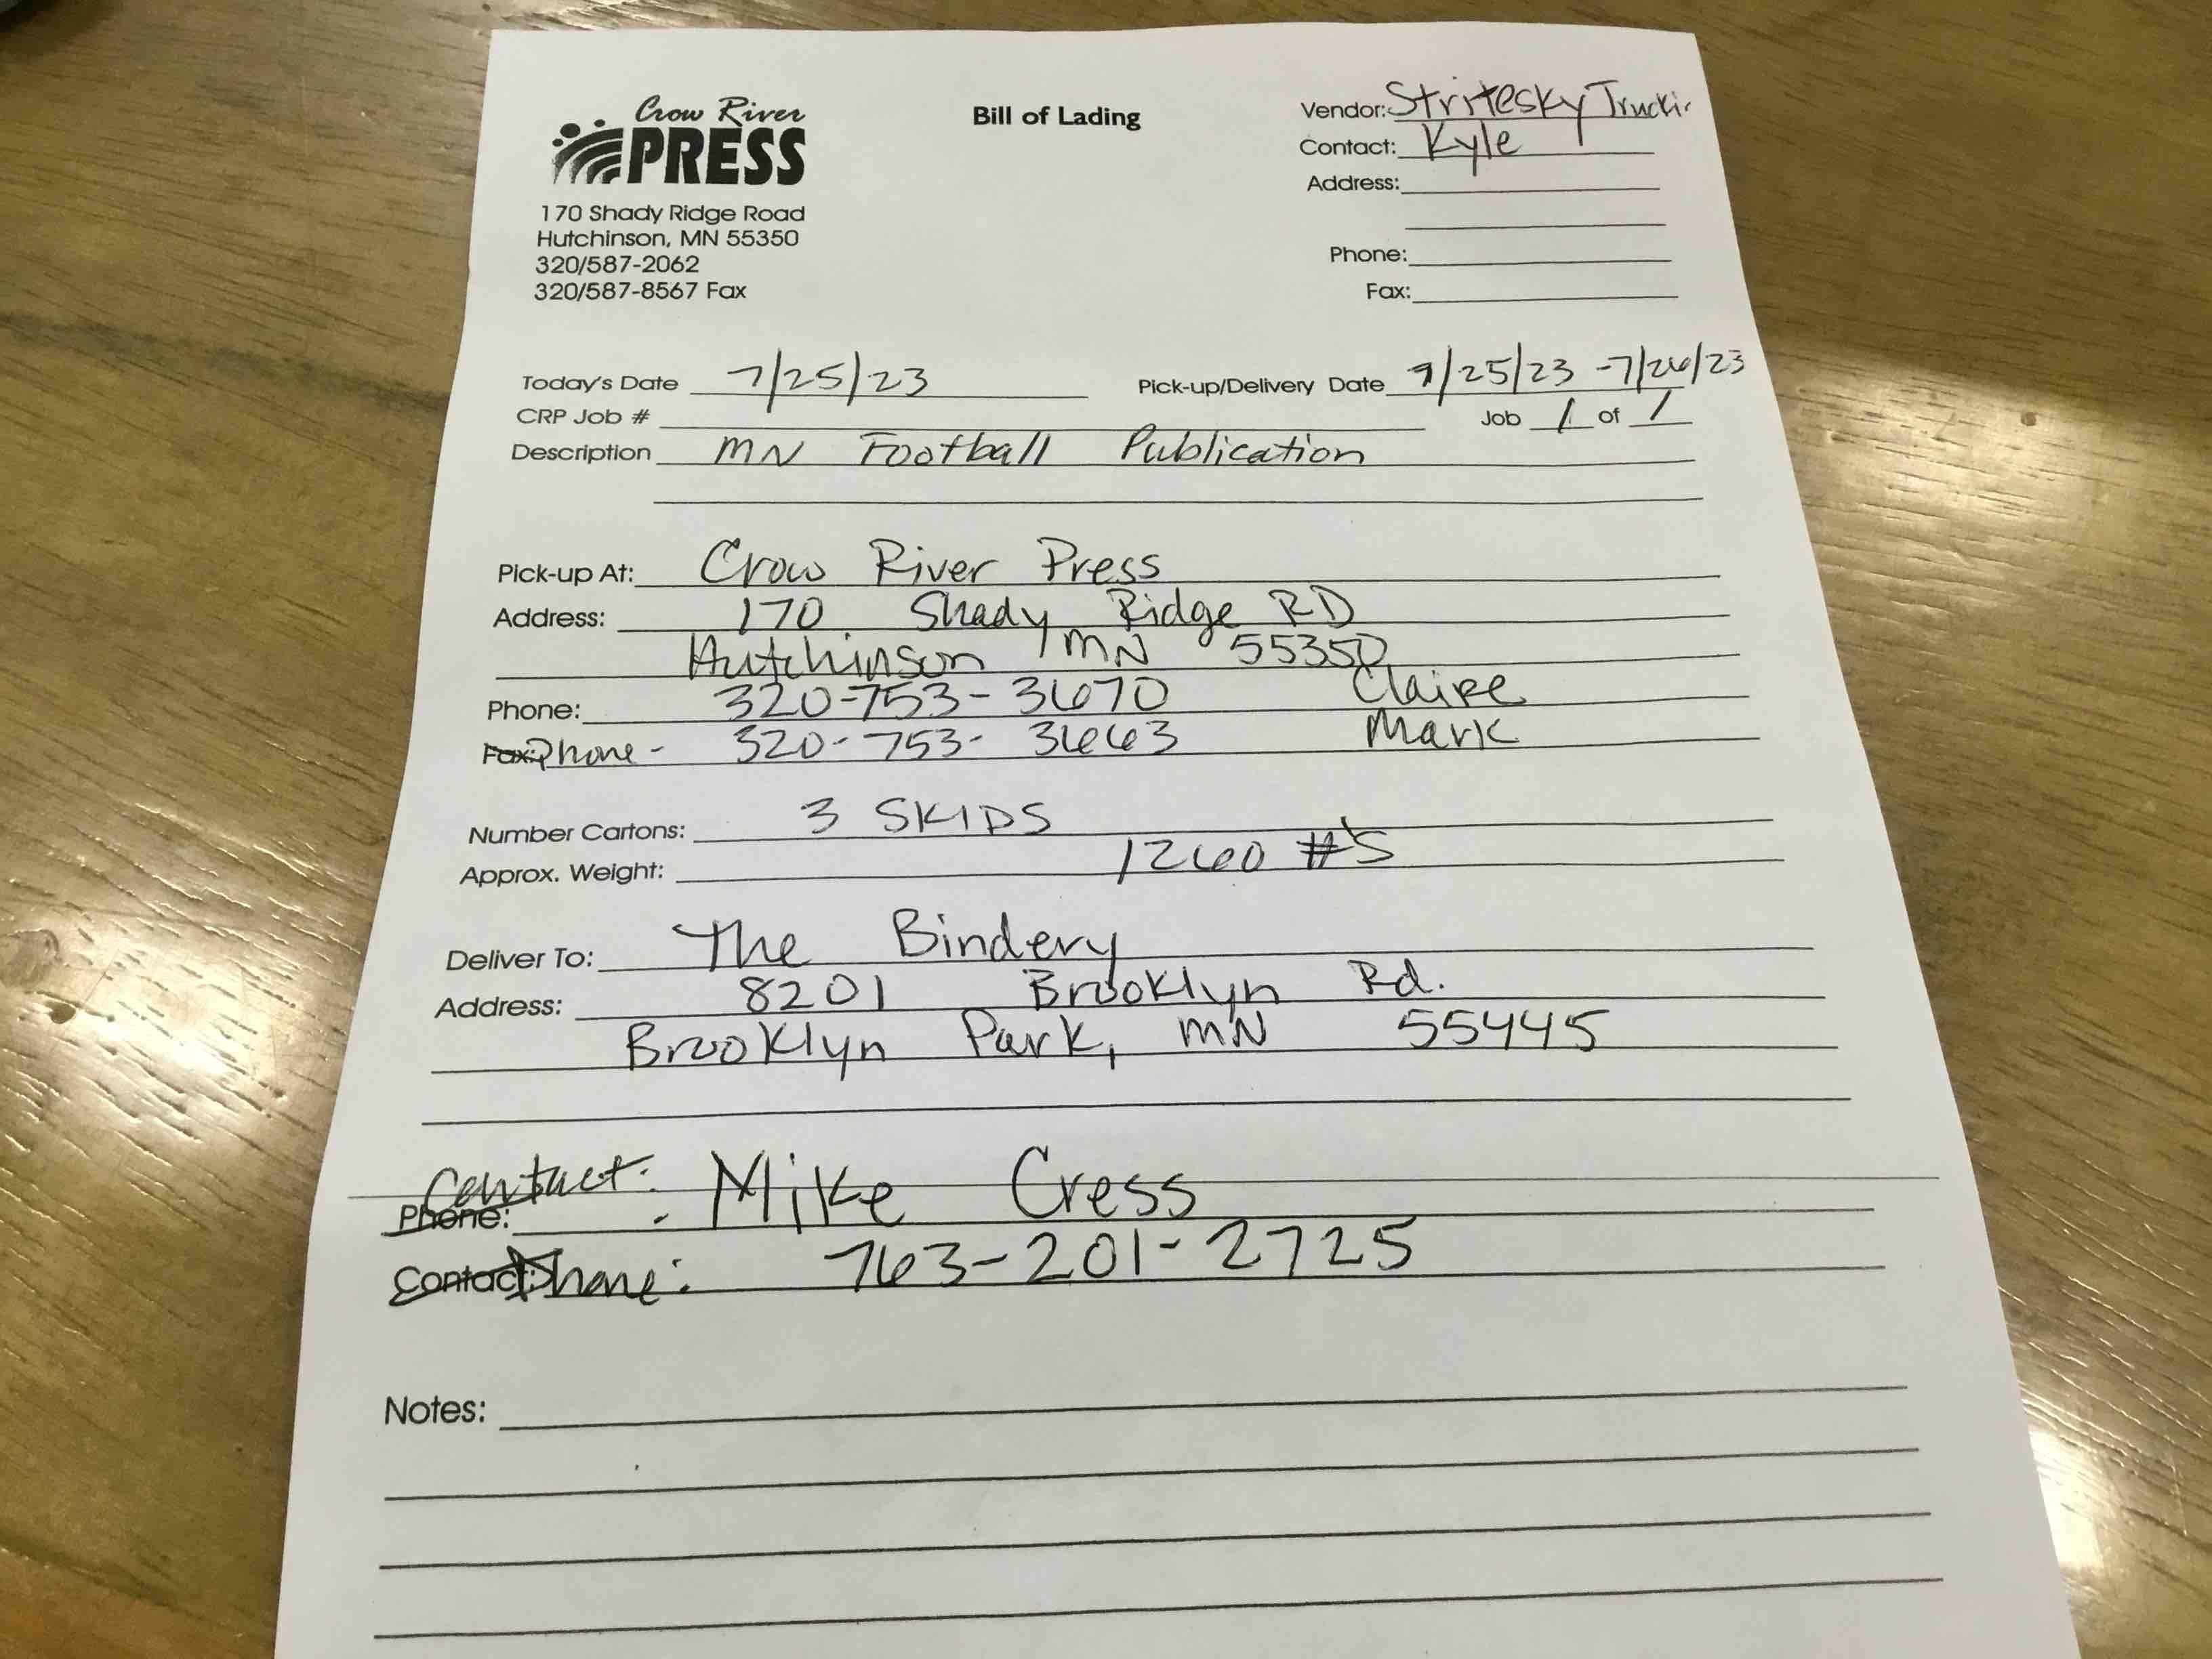 Crow River
PRESS
170 Shady Ridge Road
Hutchinson, MN 55350
320/587-2062
320/587-8567 Fax
Bill of Lading
Vendor: Stritesky Trucki
Contact: Kyle
Address:
Phone:
Fax:
Today's Date 7/25/23 Pick-up/Delivery Date 7/25/23 - 7/26/23
CRP Job # Job 1 of 1
Description MN Football Publication
Pick-up At: Crow River Press
Address: 170 Shady Ridge RD
Hutchinson, MN 55350
Phone: 320-753-3670 Claire
Fax: Phone - 320-753-3663 Mark
Number Cartons: 3 SKIDS
Approx. Weight: 1260 #'s
Deliver To: The Bindery
Address: 8201 Brooklyn Rd.
Brooklyn Park, MN 55445
Contact:
Phone: Mike Cress
Contact: Phone: 763-201-2725
Notes: